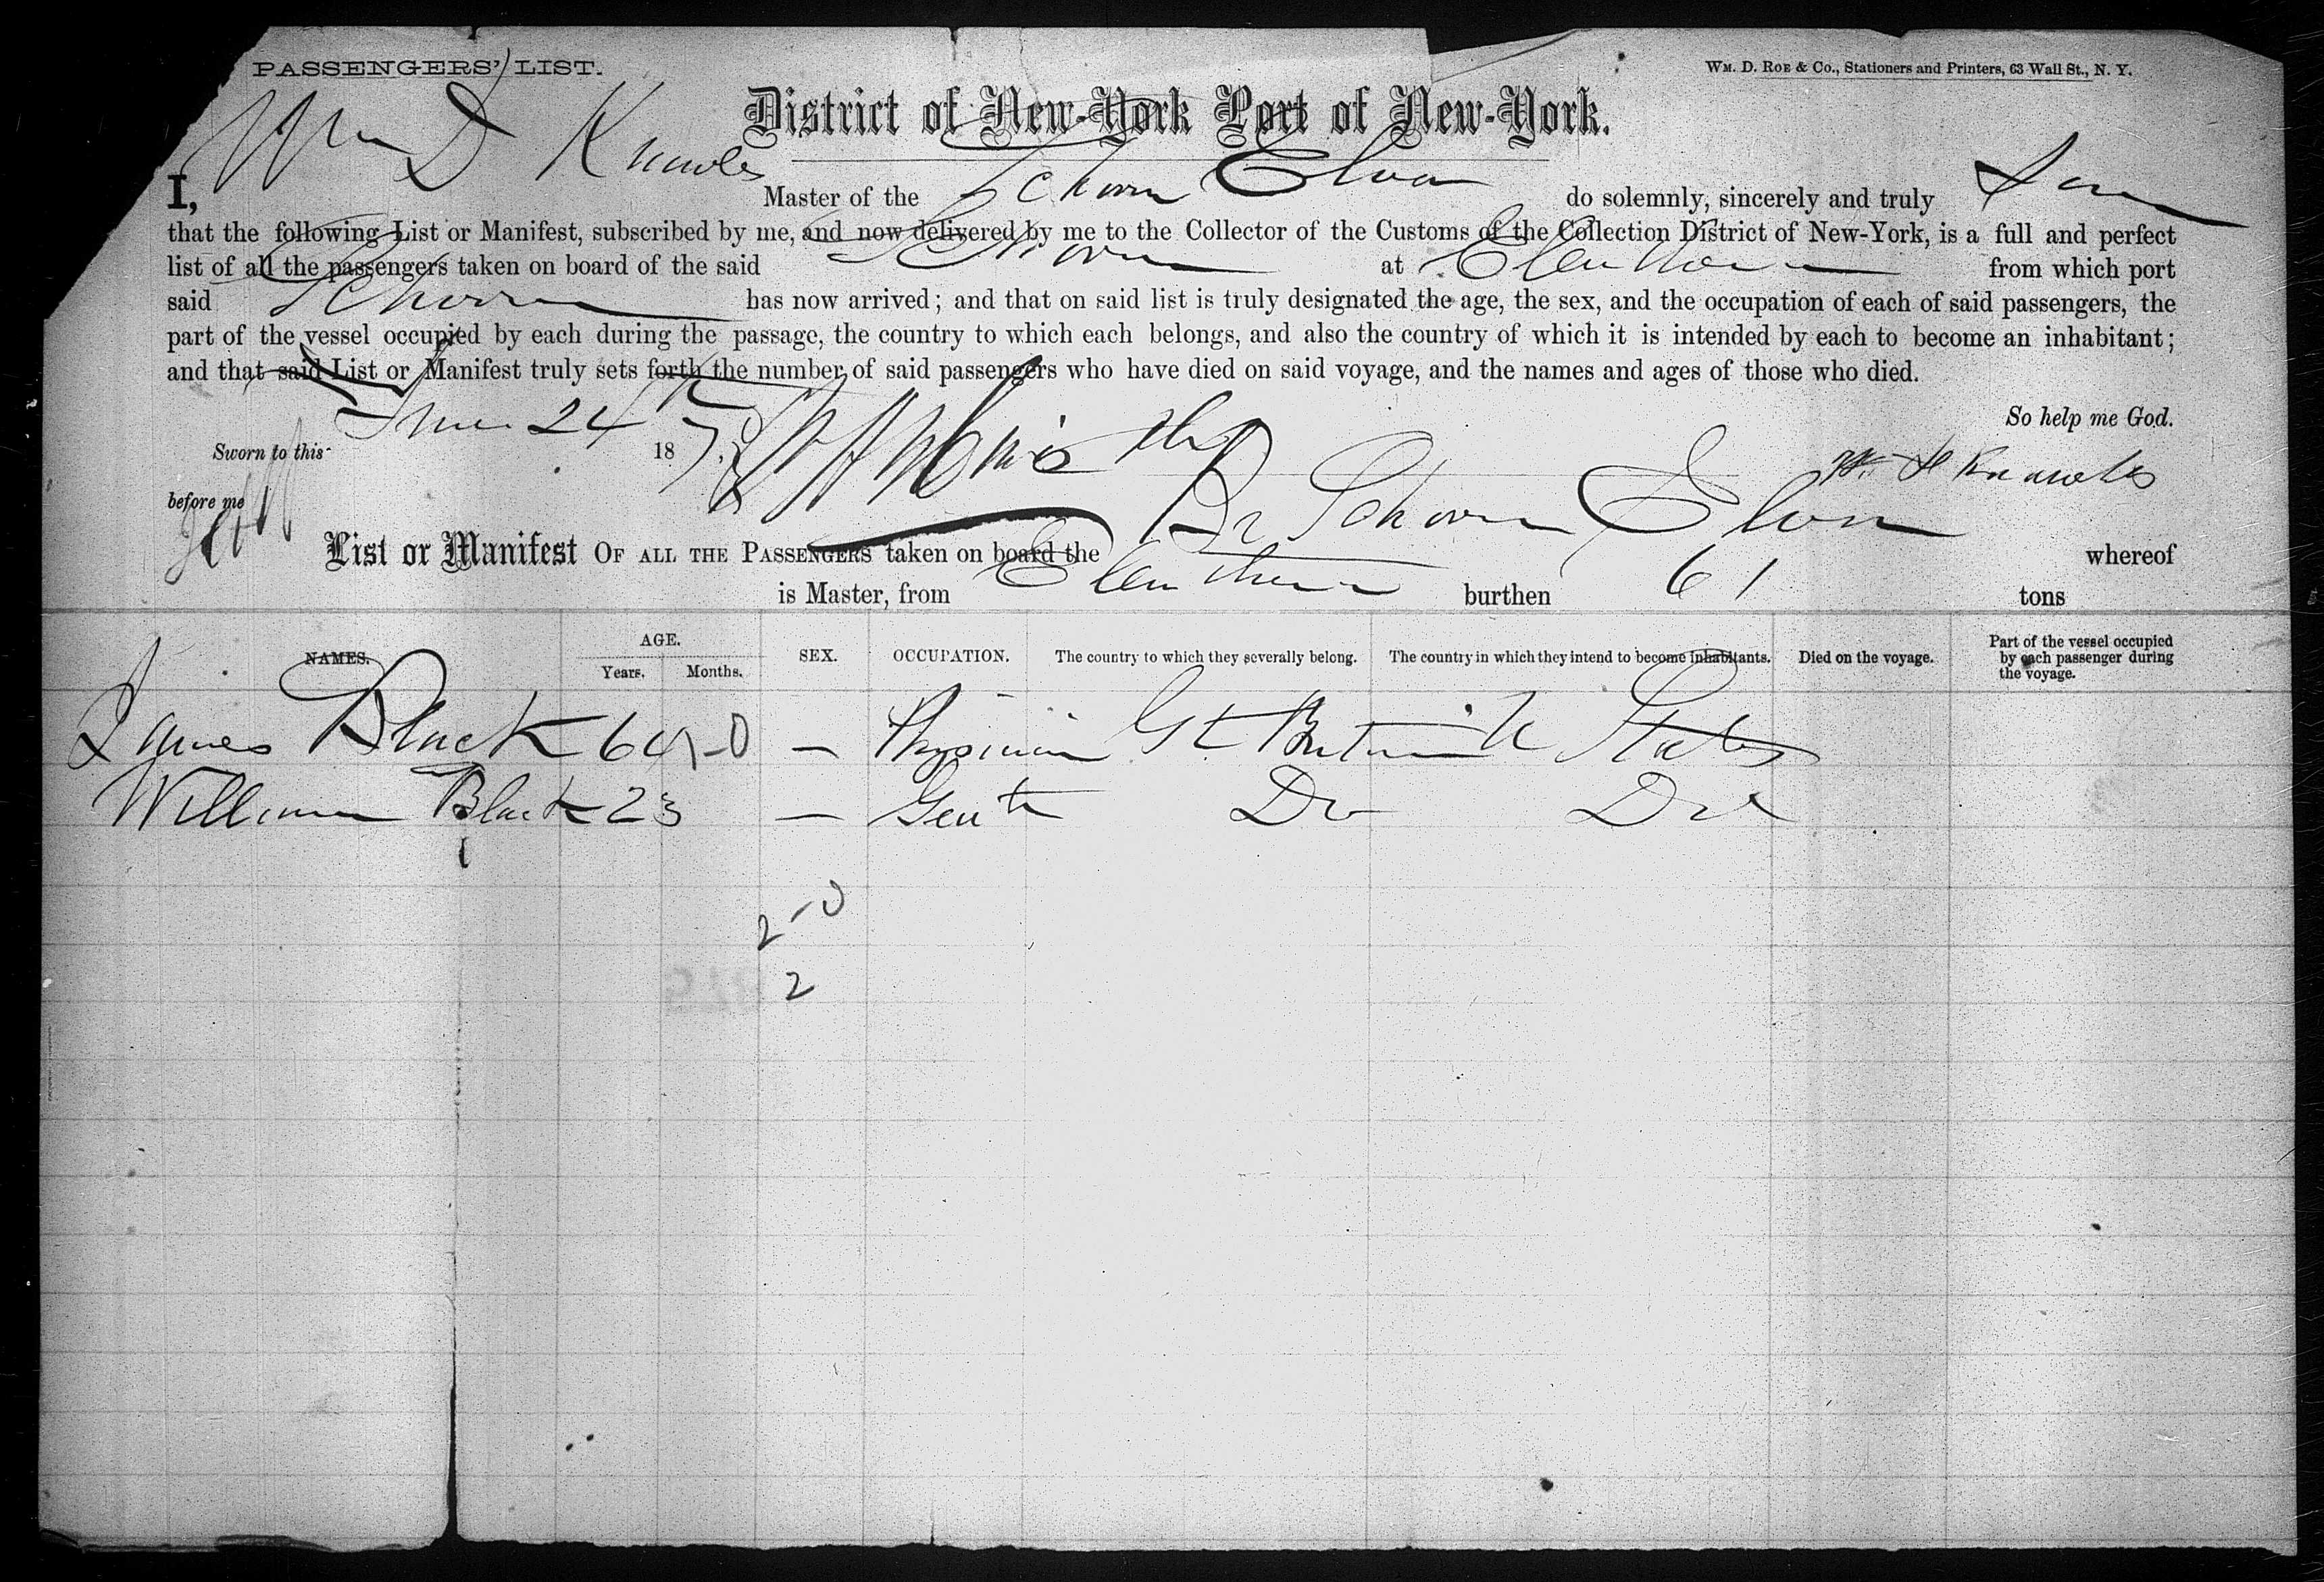 PASSENGERS' LIST.
WM. D. ROE & Co., Stationers and Printers, 63 Wall St., N. Y.
District of New-York Port of New-York.
I, Wm D Knowles Master of the Schooner do solemnly, sincerely and truly
that the following List or Manifest, subscribed by me, and now delivered by me to the Collector of the Customs of the Collection District of New-York, is a full and perfect
list of all the passengers taken on board of the said Schooner at Eleuthera from which port
said Schooner has now arrived; and that on said list is truly designated the age, the sex, and the occupation of each of said passengers, the
part of the vessel occupied by each during the passage, the country to which each belongs, and also the country of which it is intended by each to become an inhabitant;
and that said List or Manifest truly sets forth the number of said passengers who have died on said voyage, and the names and ages of those who died.
So help me God.
Sworn to this June 24 187
before me
Knowles
List or Manifest OF ALL THE PASSENGERS taken on board the Br Schooner whereof
is Master, from Eleuthera burthen 61 tons
NAMES. AGE. Years. Months. SEX. OCCUPATION. The country to which they severally belong. The country in which they intend to become inhabitants. Died on the voyage. Part of the vessel occupied by each passenger during the voyage.
James Black 64-0 — Physician Gt Britain U States
William Black 23 — Gent Do Do
2-0
2